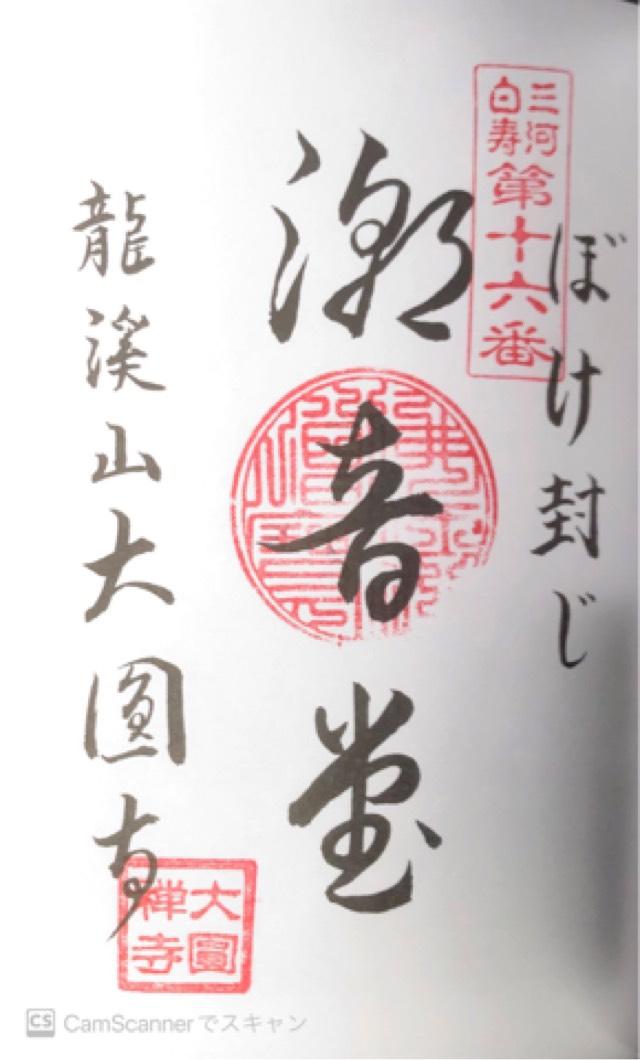 三河
白寿
第十六番
ぼけ封じ
潮音堂
龍溪山大圓寺
大圓
禅寺
CS CamScannerでスキャン